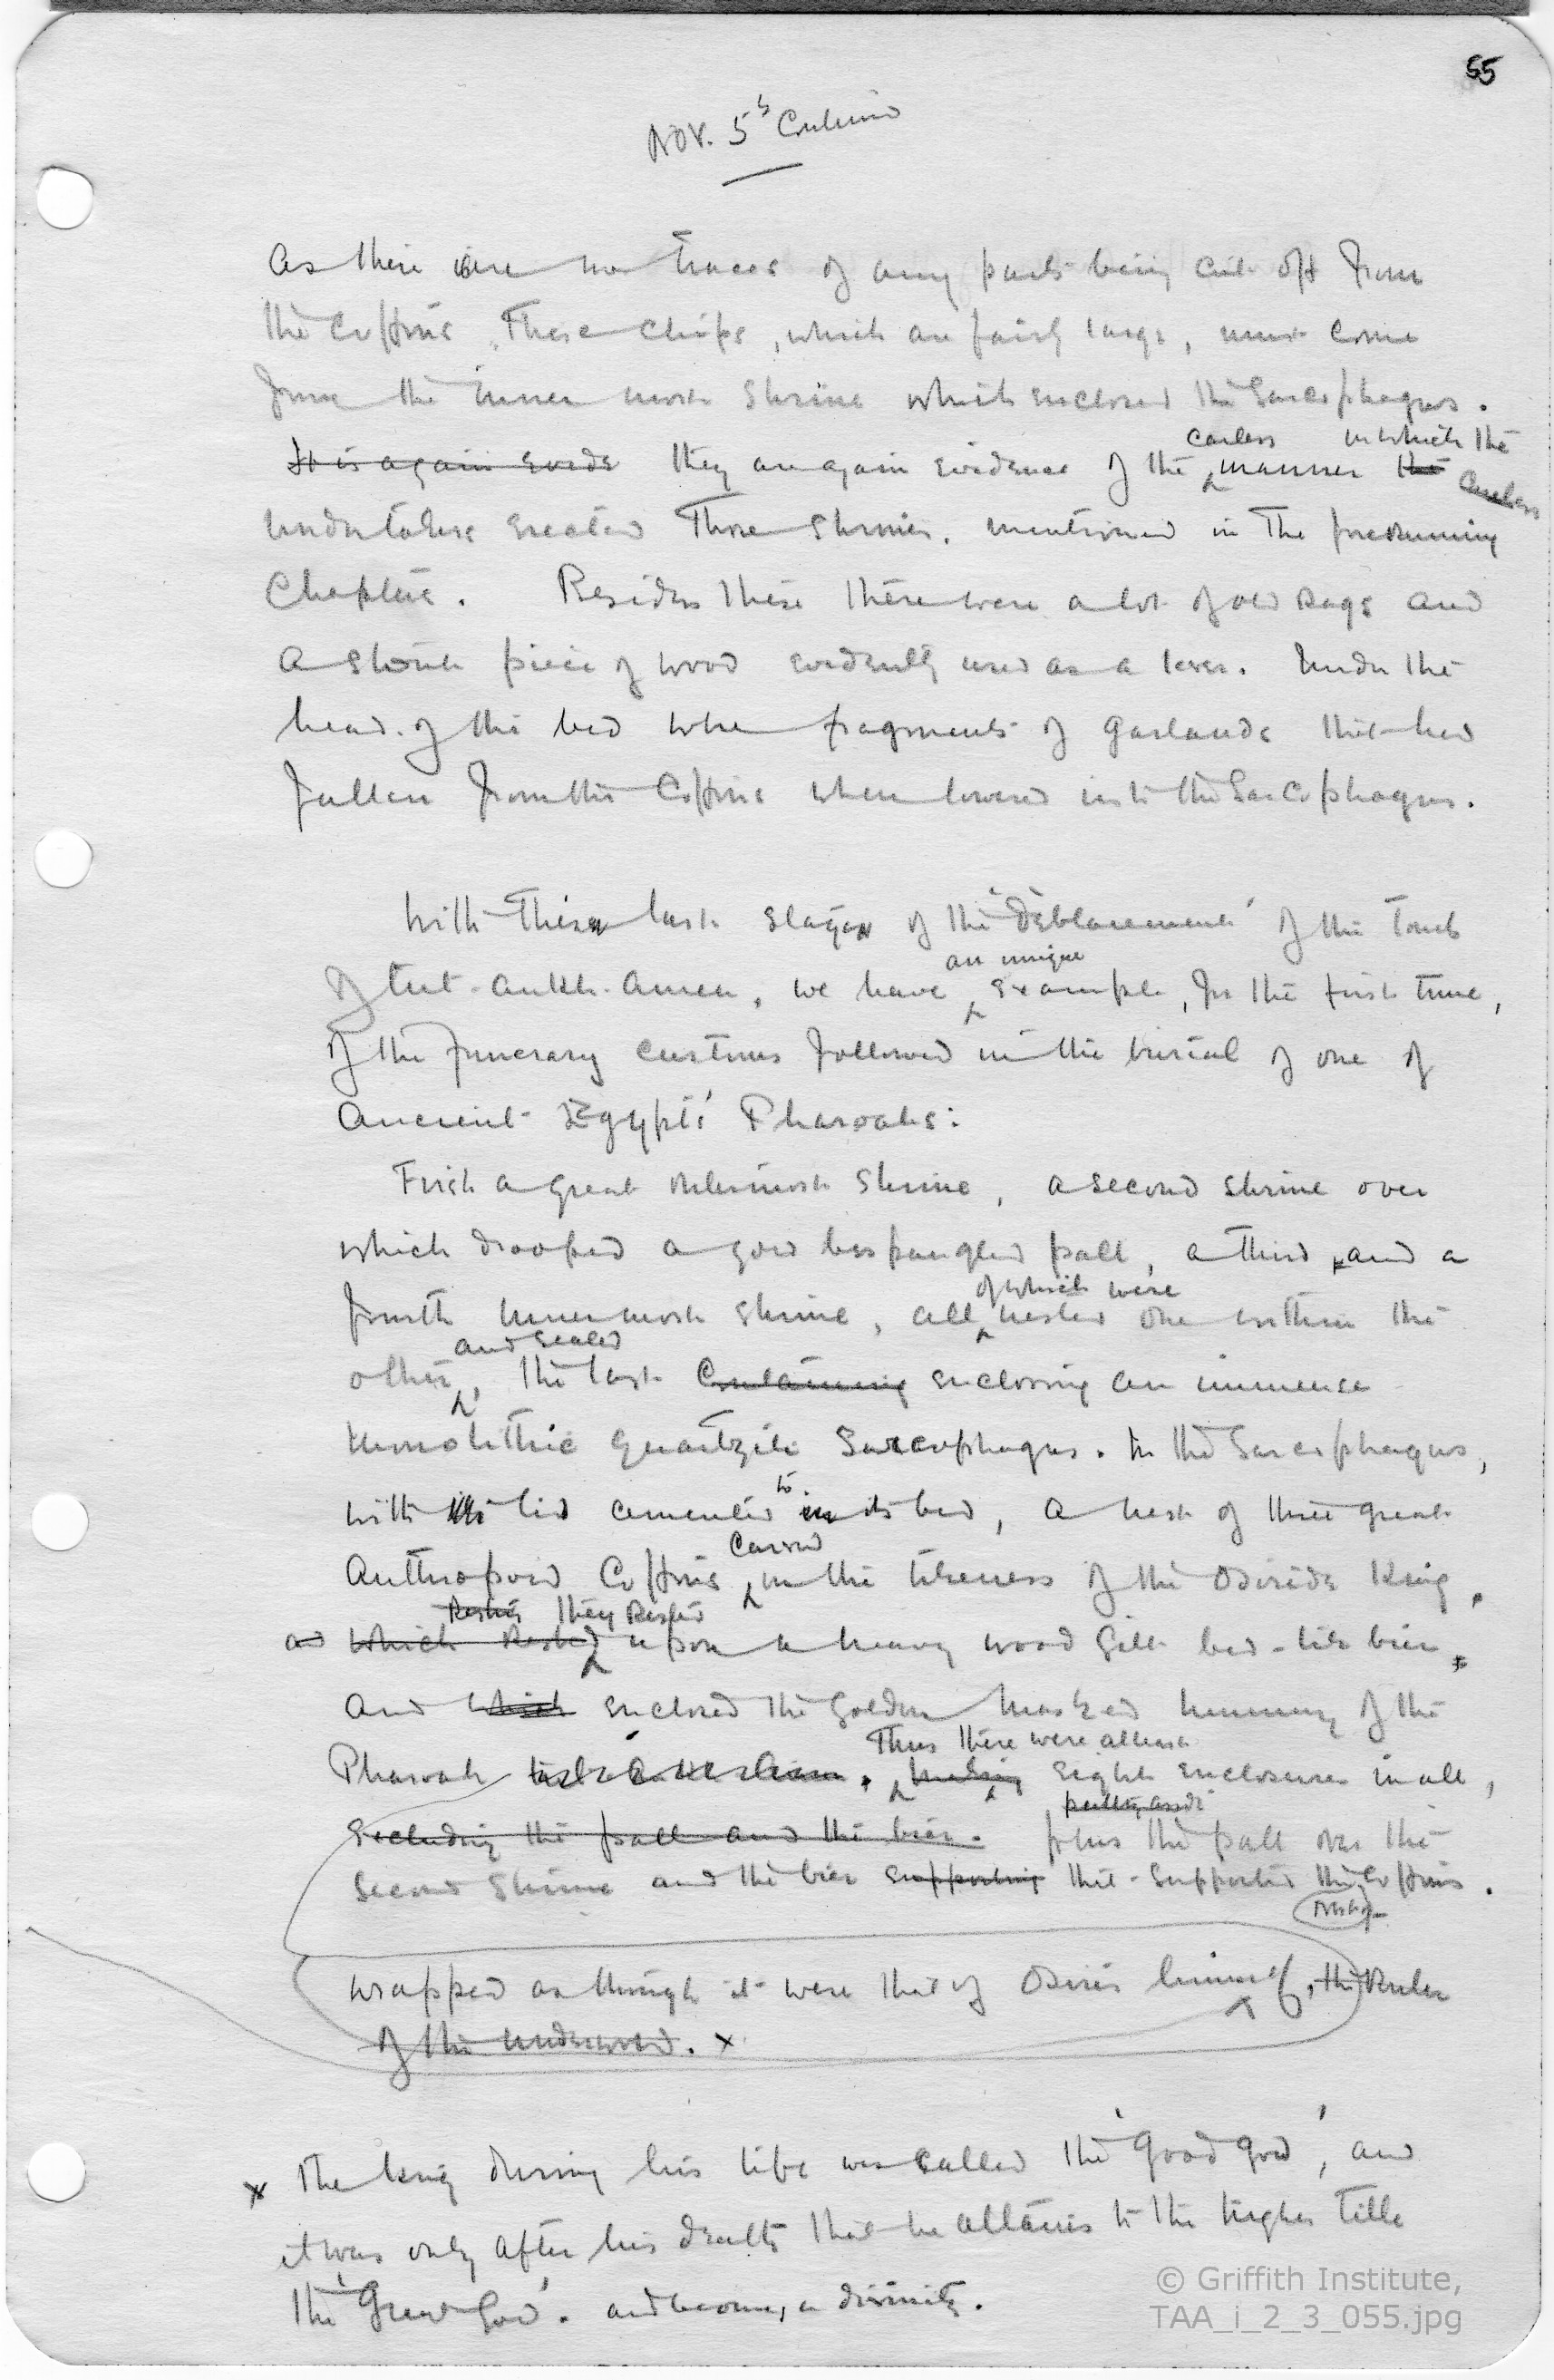 55
Nov. 5th Continued
As there were no traces of any parts being cut off from
the Coffins, These chips, which are fairly large, must come
from the inner most Shrine which enclosed the Sarcophagus.
careless in which the
It is again evide they are again evidence of the manner the careless
undertakers erected those Shrines, mentioned in the forerunning
Chapters. Besides these there were a lot of old rags and
a stout piece of wood evidently used as a lever. Under the
head of the bed where fragments of garlands that had
fallen from the Coffins when lowered into the Sarcophagus.
With these last stages of the 'déblaiement' of the Tomb
an unique
of Tut-ankh-Amen, we have example, for the first time,
of the funerary customs followed in the burial of one of
Ancient Egypt's Pharoahs:
First a great outermost Shrine, a second shrine over
which drooped a gold bespangled pall, a third and a
of which were
fourth innermost Shrine, all nested one within the
and sealed
other, the last containing enclosing an immense
Monolithic Quartzite Sarcophagus. In the Sarcophagus,
to
with its lid cemented in its bed, a nest of three great
carved
Anthropoid Coffins in the likeness of the Osiride King,
Resting they Rested
and which rested upon a heavy wood Gilt bed-like bier,
and which enclosed the Golden masked mummy of the
Thus there were at least
Pharoah Tut.ankh.Amen. making eight enclosures in all,
excluding the pall and the bier. plus the pall over the
second Shrine and the bier supporting that supported the Coffins.
wrapped as though it were that of Osiris himself, the Ruler
of the underworld. x
x The king during his life was called the 'good god', and
it was only after his death that he attains to the higher title
the 'Great God'. and becomes a divinity.
© Griffith Institute,
TAA_i_2_3_055.jpg